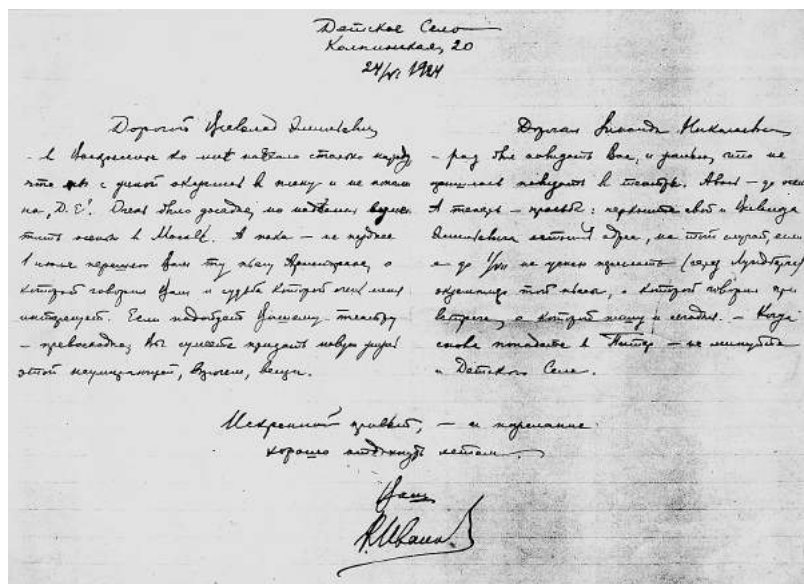 Детское Село
Колпинская, 20
24/VI 1924
Дорогой Всеволод Эмильевич
– в Воскресенье ко мне наехало столько народу,
что мы с женой окунулись в плену и не попали
на „Д. Е". Очень было досадно, но надеемся
осенью в Москве. А пока – не позднее
1 июля перешлю Вам ту пьесу Аристофана, о
которой говорил Вам и судьба которой очень меня
интересует. Если подойдет Вашему театру
– превосходно; Вы сумеете придать новую
этой неумирающей, впрочем, вещи.
Дорогая Зинаида Николаевна
– рад был повидать Вас, и жалко, что не
пришлось повидать в театре. Авось – до осени.
А теперь – просьба: черкните свой и Всеволода
Эмильевича летний адрес, на тот случай, если
я до 1/VII не успею переслать (через Лундберга)
экземпляр той пьесы, о которой говорил при
встрече, о которой пишу и сегодня. – Когда
снова попадете в Питер – не минуйте
и Детского Села.
Искренний привет, – и пожелание
хорошо отдохнуть летом.
Ваш
Р. Иванов